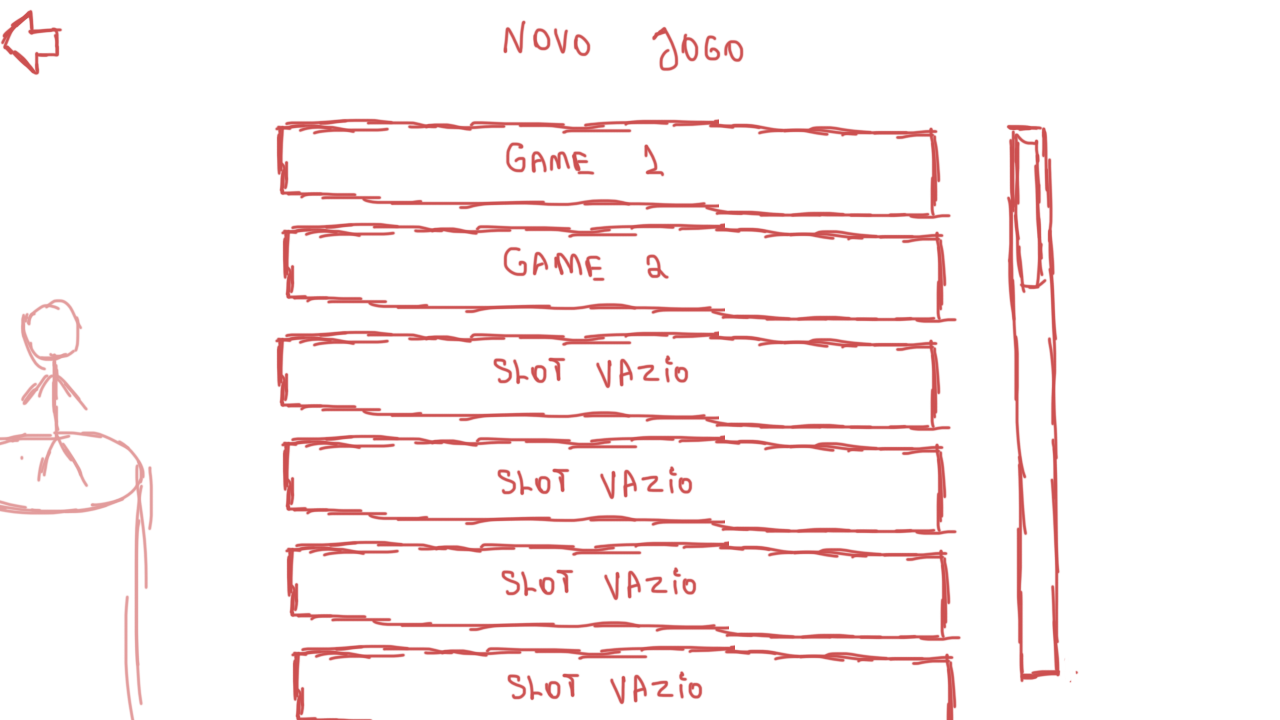 NOVO JOGO
GAME 1
GAME 2
SLOT VAZiO
SLOT VAZiO
SLOT VAZiO
SLOT VAZiO